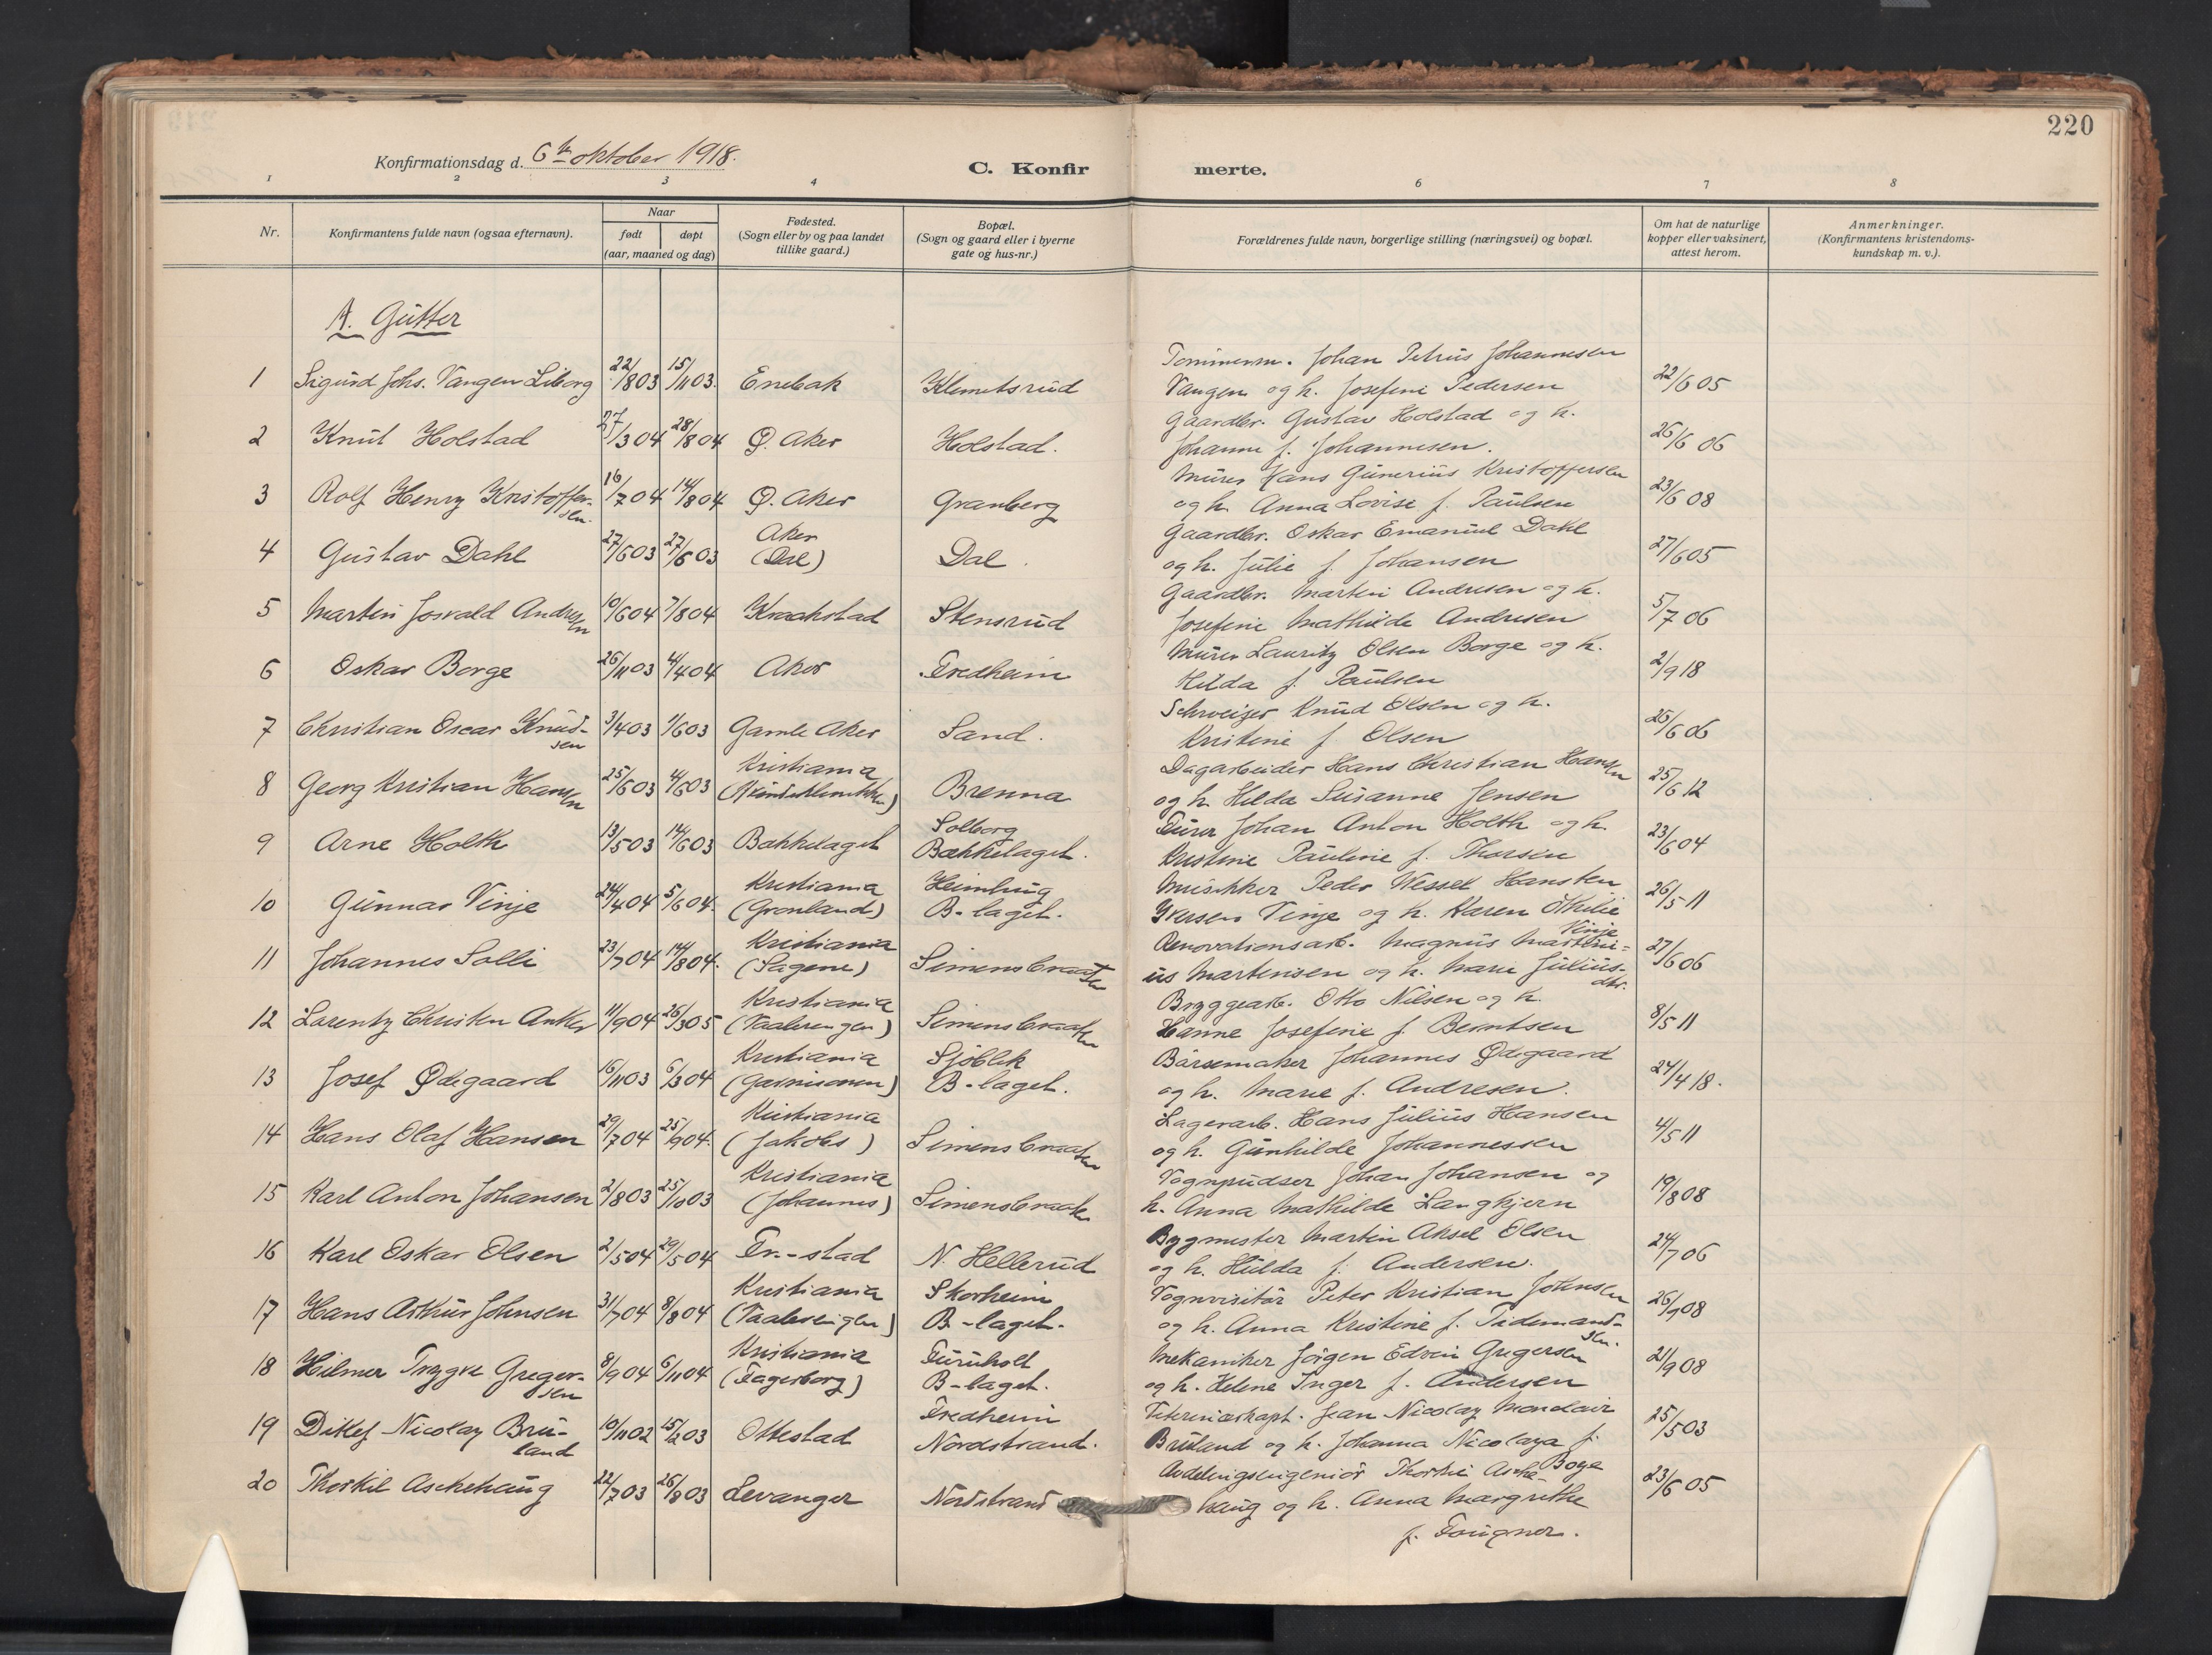 220
Konfirmationsdag d. 6te oktober 1918.
C. Konfirmerte.
1 2 3 4 6 7 8
Nr. Konfirmantens fulde navn (ogsaa efternavn). Naar født døpt (aar, maaned og dag) Fødested. (Sogn eller by og paa landet tillike gaard.) Bopæl. (Sogn og gaard eller i byerne gate og hus-nr.) Forældrenes fulde navn, borgerlige stilling (næringsvei) og bopæl. Om hat de naturlige kopper eller vaksinert, attest herom. Anmerkninger. (Konfirmantens kristendoms-kundskap m. v.).
A. Gutter
1 Sigurd Johs. Vangen Liborg 22/8 03 15/11 03. Enebak Klemetsrud Tømmerm. Johan Petrus Johannesen
Vangen og h. Josefine Pedersen 22/6 05
2 Knut Holstad 27/3 04 28/8 04 Ø. Aker Holstad. Gaardbr. Gustav Holstad og h.
Johanne f. Johannesen. 26/6 06
3 Rolf Henry Kristoffersen. 16/7 04 14/8 04 Ø. Aker Granberg Murer Hans Gunerius Kristoffersen
og h. Anna Lovise f. Paulsen 23/6 08
4 Gustav Dahl 27/6 03 27/6 03 Aker (Dal) Dal. Gaardbr. Oskar Emanuel Dahl
og h. Julie f. Johansen 27/6 05
5 Martin Josvald Andresen 10/6 04 7/8 04 Kraakstad Stensrud Gaardbr. Martin Andresen og h.
Josefine Mathilde Andresen 5/7 06
6 Oskar Borge 26/11 03 4/4 04 Aker Fredheim Murer Lauritz Olsen Borge og h.
Hilda f. Paulsen 2/9 18
7 Christian Oscar Knudsen 3/4 03 1/6 03 Gamle Aker Sand. Schweizer Knud Olsen og h.
Kristine f. Olsen 26/6 06
8 Georg Kristian Hansen 25/6 03 4/6 03 Kristiania Brenna Dagarbeider Hans Christian Hansen
og h. Hilda Susanne Jensen 25/6 12
9 Arne Holth 13/5 03 14/6 03 Bækkelaget Solborg Bækkelaget. Johan Anton Holth og h.
Kristine Pauline f. Thorsen 23/6 04
10 Gunnar Vinje 24/4 04 5/6 04. Kristiania (Grønland) Heimhug B-laget. Musikker Peder Wessel Hansten
Iversen Vinje og h. Karen Othilie Vinje 26/5 11
11 Johannes Solli 23/7 04 14/8 04. Kristiania (Sagene) Simensbraaten Renovationsarb. Magnus Martinius
Martensen og h. Marie Juliusdtr. 27/6 06
12 Lorentz Christen Anker 11/9 04 26/3 05 Kristiania (Vaalerengen) Simensbraaten Bryggearb. Otto Nilsen og h.
Hanne Josefine f. Berntsen 8/5 11
13 Josef Ødegaard 16/11 03 6/3 04 Kristiania (Garnisonen) Sjøblik B-laget. Børsemaker Johannes Ødegaard
og h. Marie f. Andresen. 24/4 18.
14 Hans Olaf Hansen 29/7 04 25/9 04. Kristiania (Jakobs) Simensbraaten Lagerarb. Hans Julius Hansen
og h. Gunhilde Johannessen 4/5 11
15 Karl Anton Johansen 2/8 03 25/10 03 Kristiania (Johannes) Simensbraaten Vognpudser Johan Johansen og
h. Anna Mathilde Langkjern 19/8 08
16 Karl Oskar Olsen 2/5 04 29/5 04 Fr.-stad N. Hellerud Bygmester Martin Aksel Olsen
og h. Hulda f. Andersen. 24/7 06
17 Hans Arthur Johnsen 31/7 04 8/8 04 Kristiania (Vaalerengen) Skorheim B-laget. Vognvisitør Peter Kristian Johnsen
og h. Anna Kristine f. Tidemandsen. 26/9 08
18 Hilmar Trygve Gregersen 8/9 04 6/11 04 Kristiania (Fagerborg) Furuholt B-laget. Mekaniker Jørgen Edvin Gregersen
og h. Helene Inger f. Andersen 21/9 08
19 Ditlef Nicolay Bruland 10/11 02 15/2 03 Ottestad Fredheim Nordstrand. Veterinærkapt. Jean Nicolay Mondair
Bruland og h. Johanna Nicolaya f. Boye 25/5 03
20 Thorkil Aschehaug 22/7 03 26/8 03 Levanger Nordstrand Avdelingsingeniør Thorkil Aschehaug
og h. Anna Margrethe
f. Fougner. 23/6 05